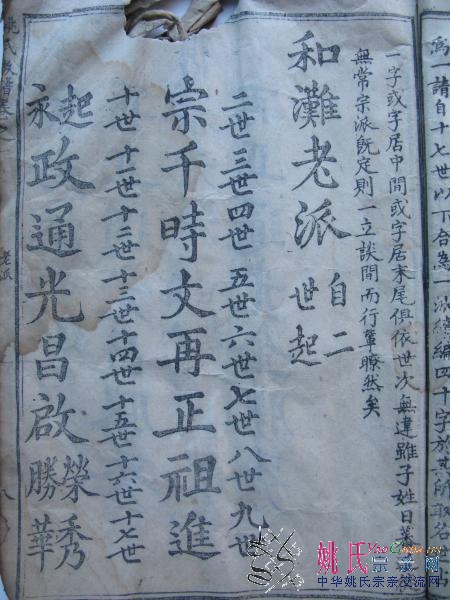 為一請自十七世以下合為一派續編四十字於其所取名
一字或字居中間或字居末尾俱依世次無違雖子姓日蕃
無常宗派既定則一立談間而行輩瞭然矣
和灘老派 自二世起
二世三世四世五世六世七世八世九世
宗千時文再正祖進
十世十一世十二世十三世十四世十五世十六世十七世
起永政通光昌啟榮秀勝華
老派 八
姚氏宗亲网
中华姚氏宗亲交流网